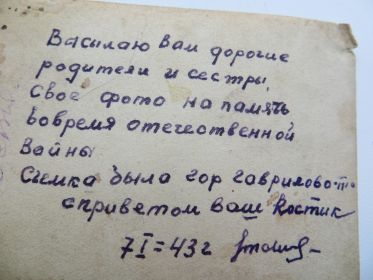 Васылаю Вам дорогие
родители и сестры,
Свое фото на память
вовремя отечественной
Войны
Съемка была гор Гаврилово-П
с приветом Ваш Костик
7 I = 43 г